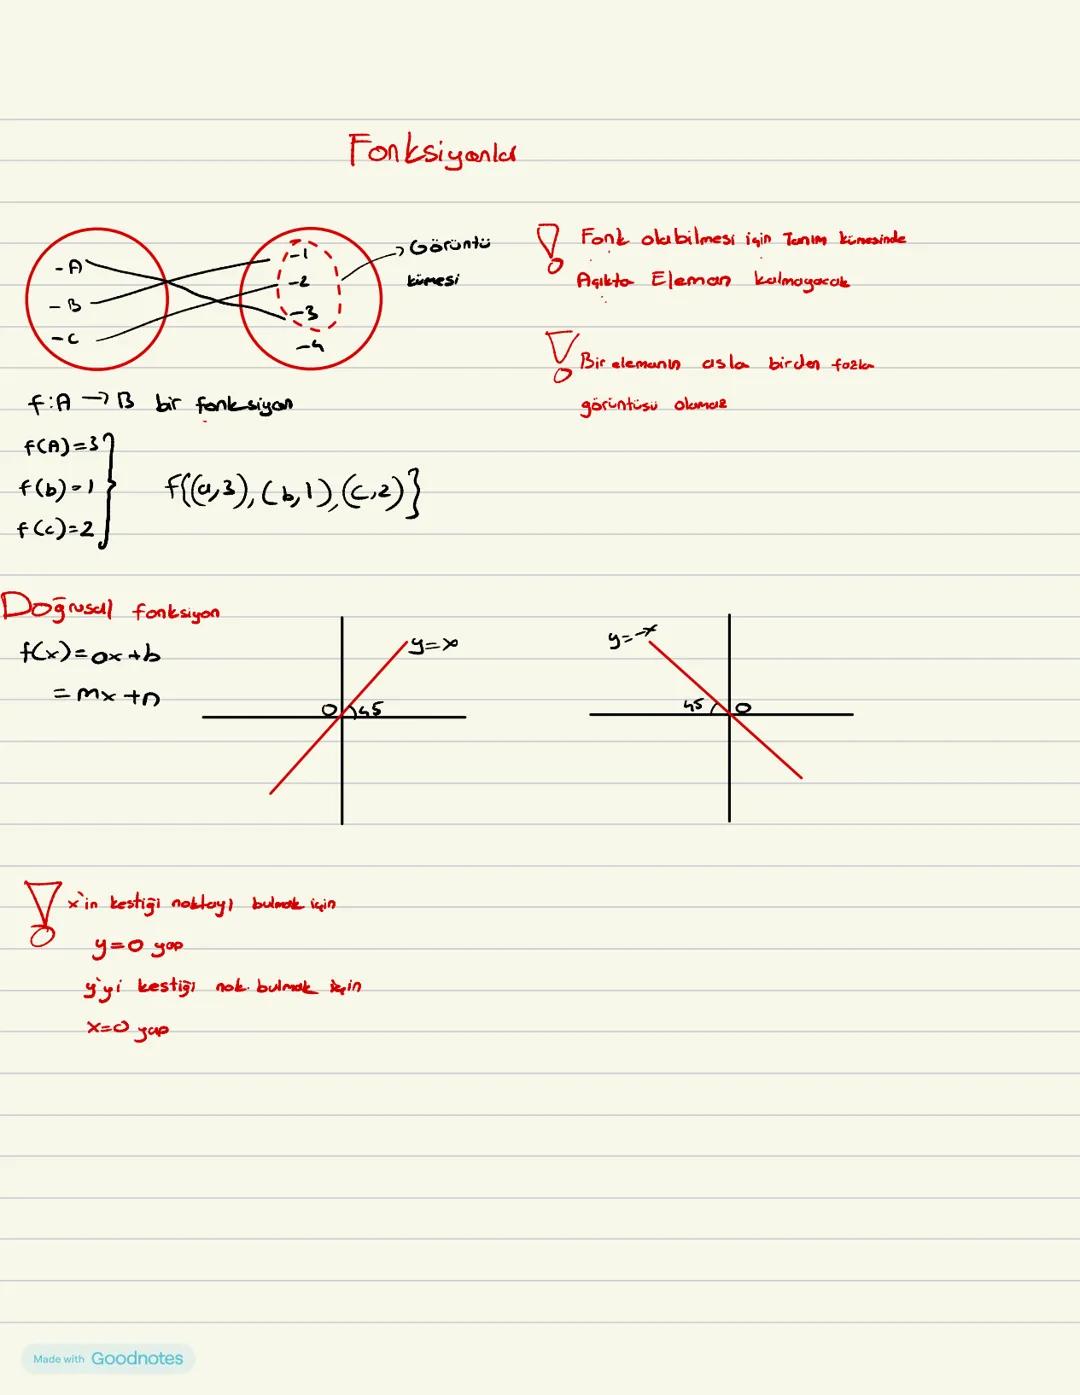 Fonksiyonlar
-A
-B
-C
-1
-2
-3
-4
→ Görüntü
kümesi
! Fonk olabilmesi için Tanım kümesinde
Açıkta Eleman kalmayacak
! Bir elemanın asla birden fazla
görüntüsü olamaz
f:A → B bir fonksiyon
f(A)=3
f(b)=1
f(c)=2
f{(a,3),(b,1),(c,2)}
Doğrusal fonksiyon
f(x)=ax+b
=mx+n
y=x
0
45
y=-x
45
0
! x'in kestiği noktayı bulmak için
y=0 yap
y'yi kestiği nok. bulmak için
x=0 yap
Made with Goodnotes